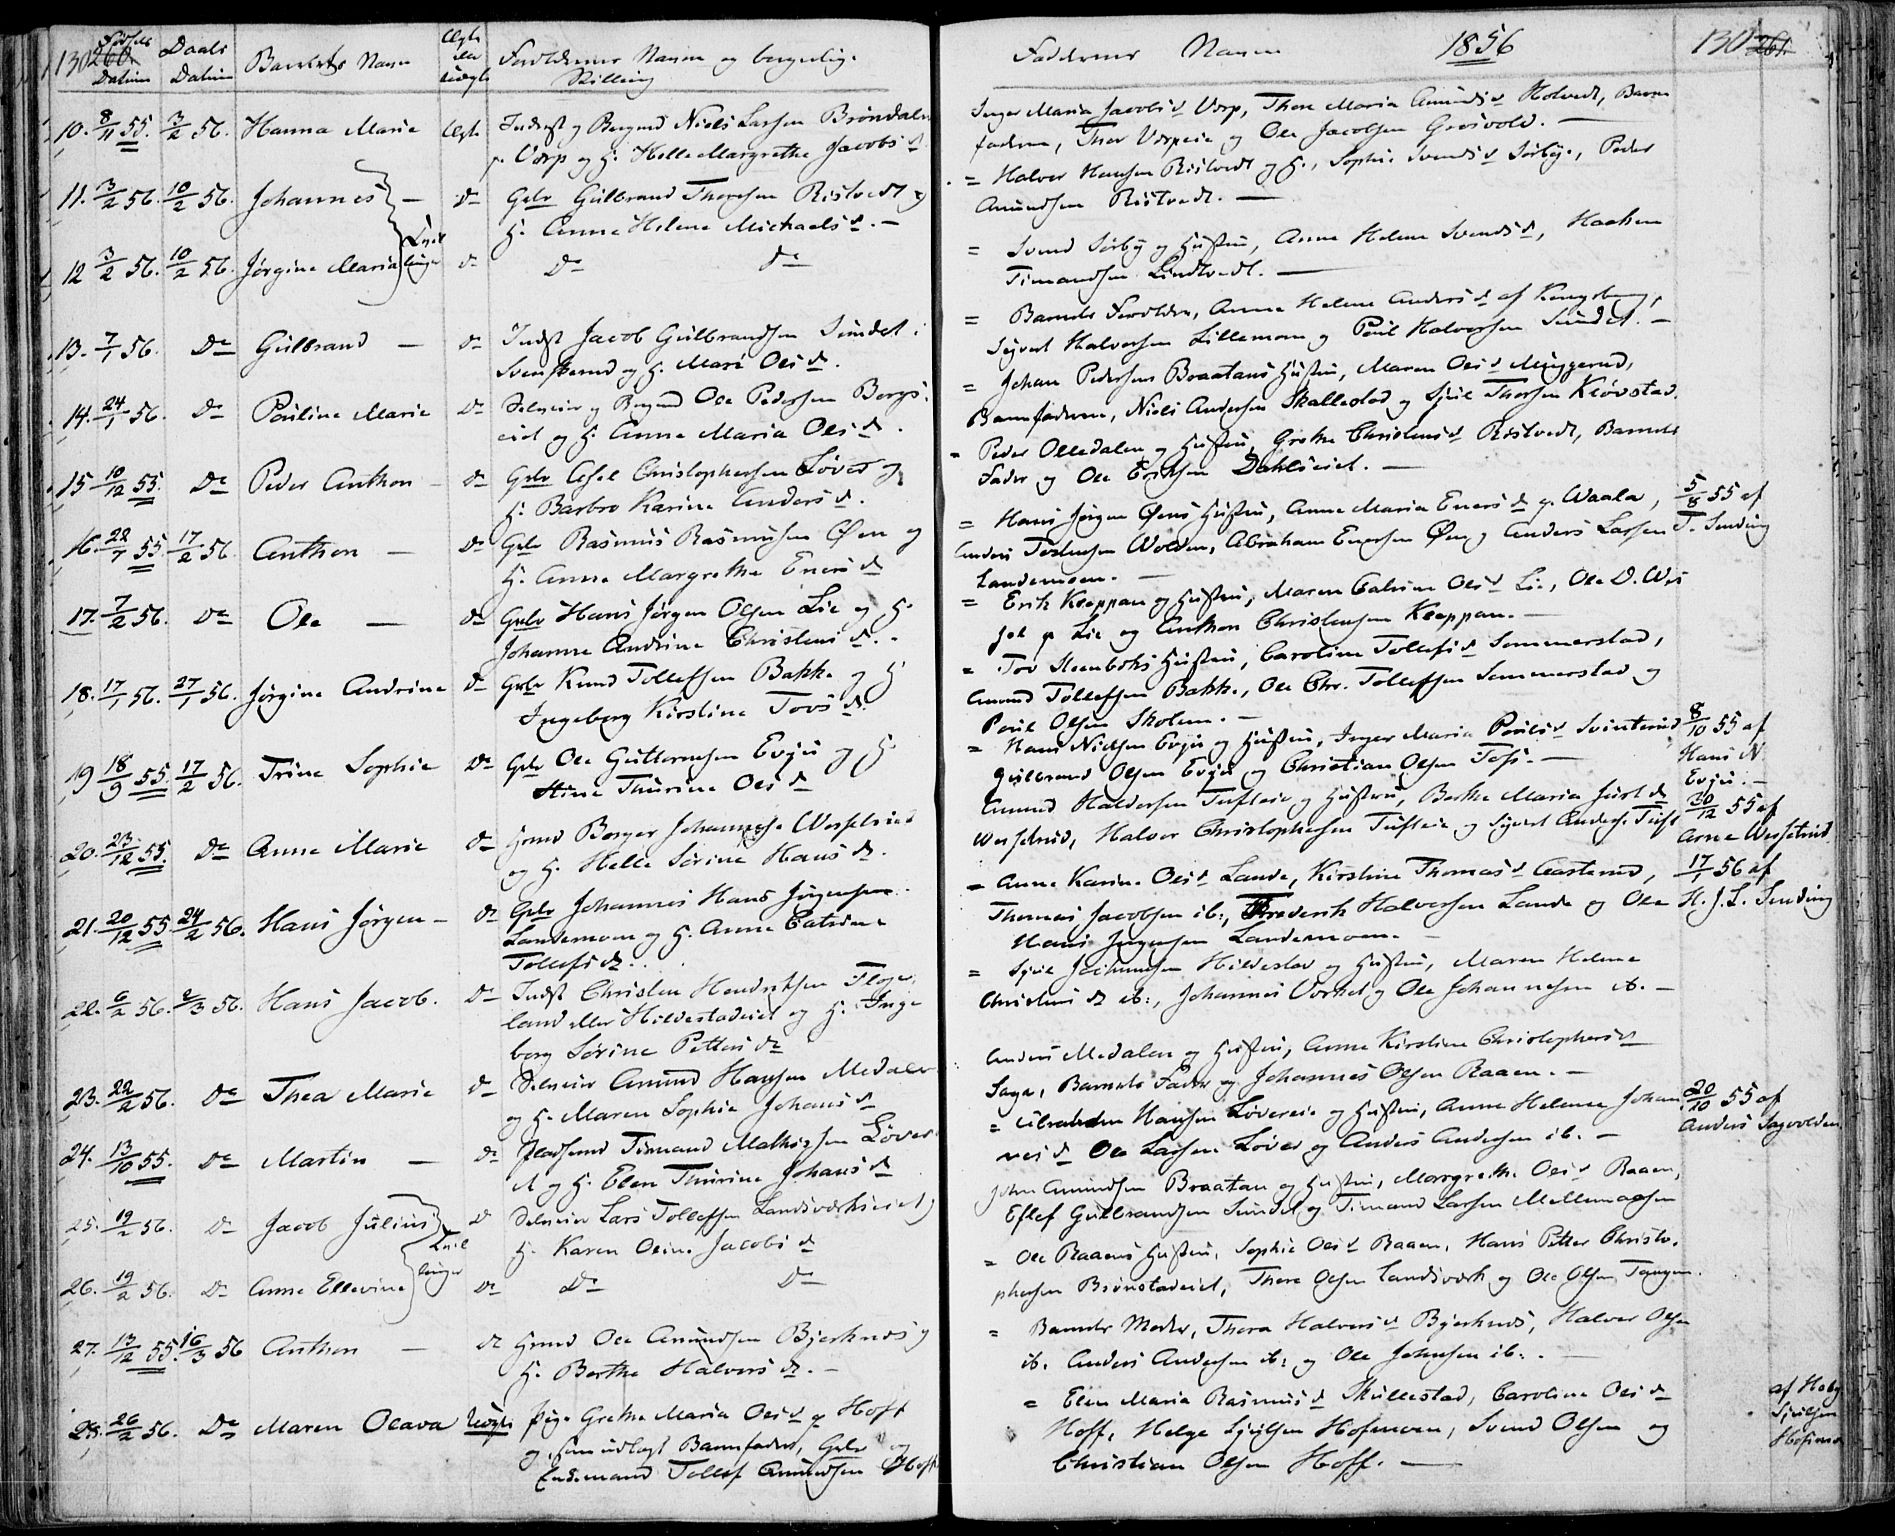 130 260. Fødsels Datum Daabs Datum Barnets Navn Ægte eller Uægte Forældrenes Navne og borgerlige Stilling
10. 8/11 55. 3/2 56. Hanna Marie Ægte Inderst og Bergmd Niels Larsen Brøndalen
p. Vorp og H. Helle Margrethe Jacobs D.
11. 3/2 56. 10/2 56. Johannes – do Grbr Gulbrand Thoresen Ristvedt og
H. Anne Helene Michaels D. –
12 3/2 56. 10/2 56. Jørgine Maria Tvillinger do Do Do
13. 7/1 56. Do Gulbrand – do Indst Jacob Gulbrandsen Sundet i
Svenskerud og H. Mari Oles D.
14. 24/1 56. Do Pauline Marie Do Selveier og Bergmd Ole Pedersen Bergs-
eiet og H. Anne Maria Oles D.
15 10/12 55. Do Peder Anthon – do Grbr Axel Christophersen Løver og
H. Barbro Karine Anders D.
16. 22/7 55. 17/2 56. Anthon – do Grbr Rasmus Rasmussen Øen og
H. Anne Margrethe Eners D
17. 7/2 56. Do Ole – do Grbr Hans Jørgen Olsen Lie og H.
Johanne Andrine Christens D. –
18. 17/1 56. 27/1 56. Jørgine Andrine do Grbr Knud Tollefsen Bakke og H
Ingeborg Kirstine Tovs D.
19 18/9 55. 17/2 56. Trine Sophie Do Grbr Ole Guttormsen Evju og H.
Stine Thurine Oles D
20. 23/12 55. Do Anne Marie do Grmd Borger Johannes Wesselrud
og H. Helle Sørine Hans D.
21. 20/12 55. 24/2 56. Hans Jørgen – do Grbr Johannes Hans Jørgensen
Landemoen og H. Anne Catrine
Tollefs D.
22. 6/2 56. 2/3 56. Hans Jacob. Do Indst Christen Hendriksen
land eller Hildestadeiet og H. Inge
borg Sørine Petters D
23. 22/2 56. Do Thea Marie do Selveier Amund Hansen Medalen
og H. Maren Sophie Johans D
24. 13/10 55. Do Martin – do Pladsmd Timand Mathisen Løver
et og H. Elen Thurine Johans D
25. 19/2 56. Do Jacob Julius do Selveier Lars Tollefsen Landsverkseiet og
Tvillinger H. Karen Oline Jacobs D
26. 19/2 56. Do Anne Ellevine do Do Do
27. 13/12 55. 16/3 56 Anthon – do Grmd Ole Amundsen Bjerknes og
H. Berthe Halvors D. –
28. 26/2 56. Do Maren Olava Uægte Pige Grethe Maria Oles D p Hoff
og som udlagt Barnefader, Grbr og
Enkemand Tollef Amundsen Hoff
Faddernes Navne 1856 130 261.
Inger Maria Jacobs D Vorp, Thore Maria Amunds D Holvedt, Barne
faderen, Thor Vorpeie og Ole Jacobsen Grosvold. –
= Halvor Hansen Ristvedt og H., Sophie Svends D Sørby, Peder
Amundsen Ristvedt. –
= Svend Sørby og Hustru, Anne Helene Svends D, Haaken
Timandsen Lindtvedt. –
= Barnets Forældre, Anne Helene Anders D af Kongsberg,
Syvert Halvorsen Lillemoen og Poul Halvorsen Sundet. –
= Johan Pedersens Braatans Hustru, Maren Oles D Muggerud,
Barnefaderen, Niels Andersen Skallestad og Sjul Thorsen Kløvstad.
= Peder Olledalen og Hustru, Grethe Christens D Ristvedt, Barnets
Fader og Ole Eriksen Dahlseiet. –
= Hans Jørgen Øens Hustru, Anne Maria Eners D p. Waala, 5/8 55 af
Anders Torstensen Wolden, Abraham Enersen Øen og Anders Larsen T. Sending
Landemoen. –
= Erik Knappan og Hustru, Maren Catrine Oles D Lie, Ole D. Wes
sel p Lie og Anthon Christensen Knappan. –
= Tov Steenboks Hustru, Caroline Tollefs D Sommerstad,
Amund Tollefsen Bakke, Ole Chr. Tollefsen Sommerstad og
Poul Olsen Skolem. –
= Hans Nielsen Evju og Hustru, Inger Maria Pouls D Svinterud 8/10 55 af
Gulbrand Olsen Evju og Christian Olsen Foss. – Hans N.
Evju. –
Amund Halvorsen Tufteie og Hustru, Berthe Maria Juuls D 30/12 55 af
Wesselrud, Halvor Christophersen Tufteie og Syvert Anders. Tuft Arne Wesselrud.
= Anne Karine Oles D Lande, Kirstine Thomas D Aasterud, 17/1 56 af
Thomas Jacobsen ib:, Frederik Halvorsen Lande og Ole H. J. L. Sending
Hans Jørgensen Landemoen. –
= Sjul Hildestad og Hustru, Maren Helene
Christens D ib:, Johannes Vorkel og Ole Johannesen ib. –
Anders Medalen og Hustru, Anne Kirstine Christophers D
Saga, Barnets Fader og Johannes Olsen Raaen. –
= Abraham Hansen Løvereie og Hustru, Anne Helene Johan 20/10 55 af
nes D Ole Larsen Løver og Anders Andersen ib. – Anders Sagvolden
John Amundsen Braatan og Hustru, Margrethe Oles D Raaen,
Eflef Gulbrandsen Sundet og Timand Larsen Mellemaasen
= Ole Raaens Hustru, Sophie Oles D Raaen, Hans Petter Christo-
phersen Brønstadeiet, Thore Olsen Landsverk og Ole Olsen Tangen.
= Barnets Moder, Thora Halvors D Bjerknes, Halvor Olsen
ib. Anders Andersen ib: og Ole Johnsen ib:. –
= Elen Maria Rasmus D Skullestad, Caroline Oles D af Helge
Hoff, Helge Sjulsen Hofsmoen, Svend Olsen og Sjulsen
Christian Olsen Hoff. – Hofsmoen